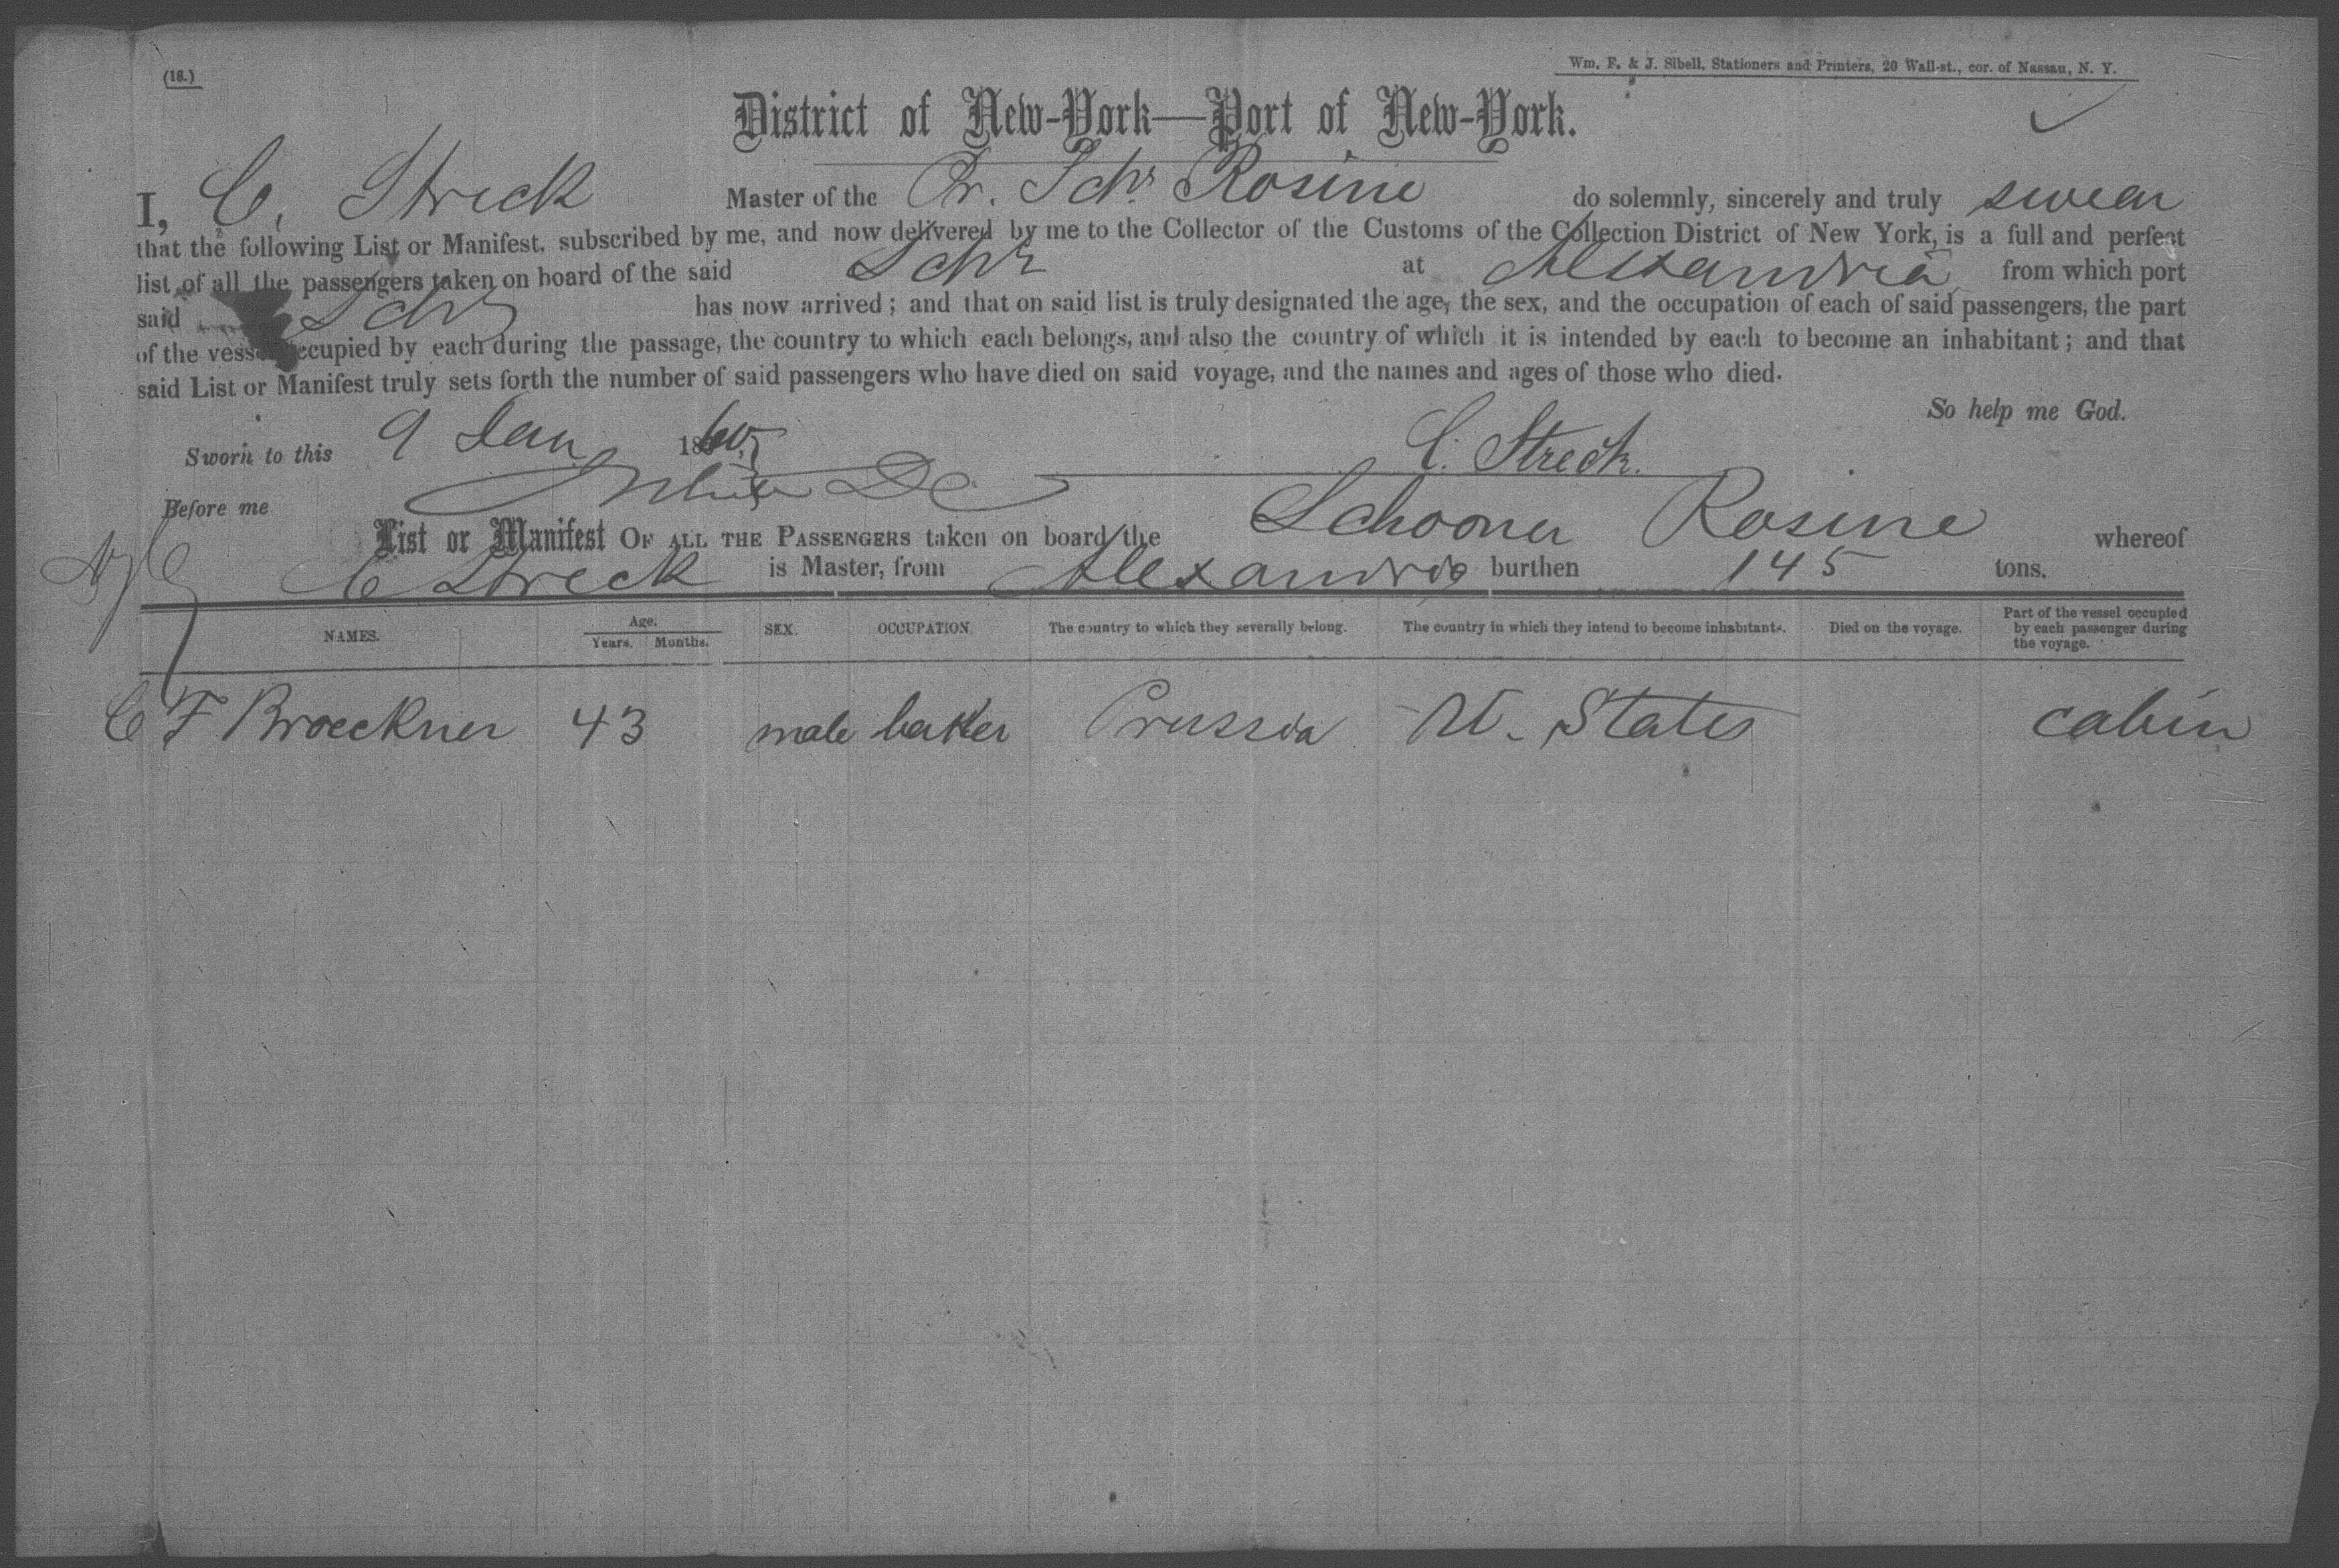 (18.)
Wm. F. & J. Sibell, Stationers and Printers, 20 Wall-st., cor. of Nassau, N. Y.
District of New-York—Port of New-York.
I, C. Streck Master of the Pr. Schr Rosine do solemnly, sincerely and truly swear
that the following List or Manifest, subscribed by me, and now delivered by me to the Collector of the Customs of the Collection District of New York, is a full and perfect
list of all the passengers taken on board of the said Schr at Alexandria from which port
said Schr has now arrived; and that on said list is truly designated the age, the sex, and the occupation of each of said passengers, the part
of the vessel occupied by each during the passage, the country to which each belongs, and also the country of which it is intended by each to become an inhabitant; and that
said List or Manifest truly sets forth the number of said passengers who have died on said voyage, and the names and ages of those who died.
So help me God.
Sworn to this 9 Jan 1860 C. Streck.
Before me
List or Manifest OF ALL THE PASSENGERS taken on board the Schooner Rosine whereof
C Streck is Master, from Alexandria burthen 145 tons.
NAMES. Age. Years. Months. SEX. OCCUPATION. The country to which they severally belong. The country in which they intend to become inhabitants. Died on the voyage. Part of the vessel occupied by each passenger during the voyage.
C F Broeckner 43 male baker Prussia U. States cabin